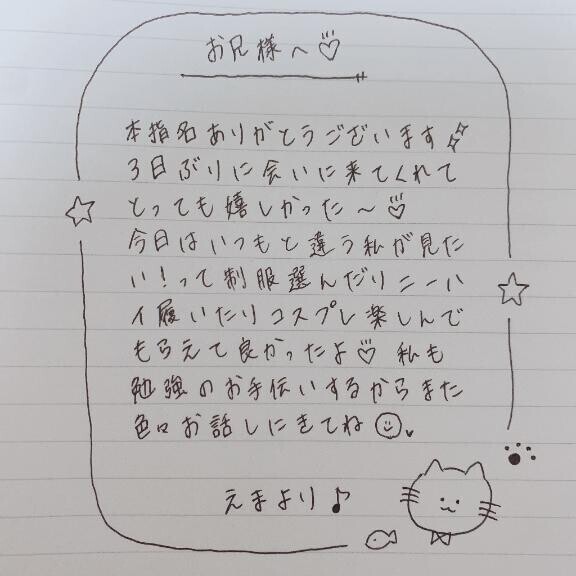 お兄様へ♡
本指名ありがとうございます
3日ぶりに会いに来てくれて
とっても嬉しかった〜♡
今日はいつもと違う私が見た
い!って制服選んだりニーハ
イ履いたりコスプレ楽しんで
もらえて良かったよ♡ 私も
勉強のお手伝いするからまた
色々お話しにきてね
えまより♪